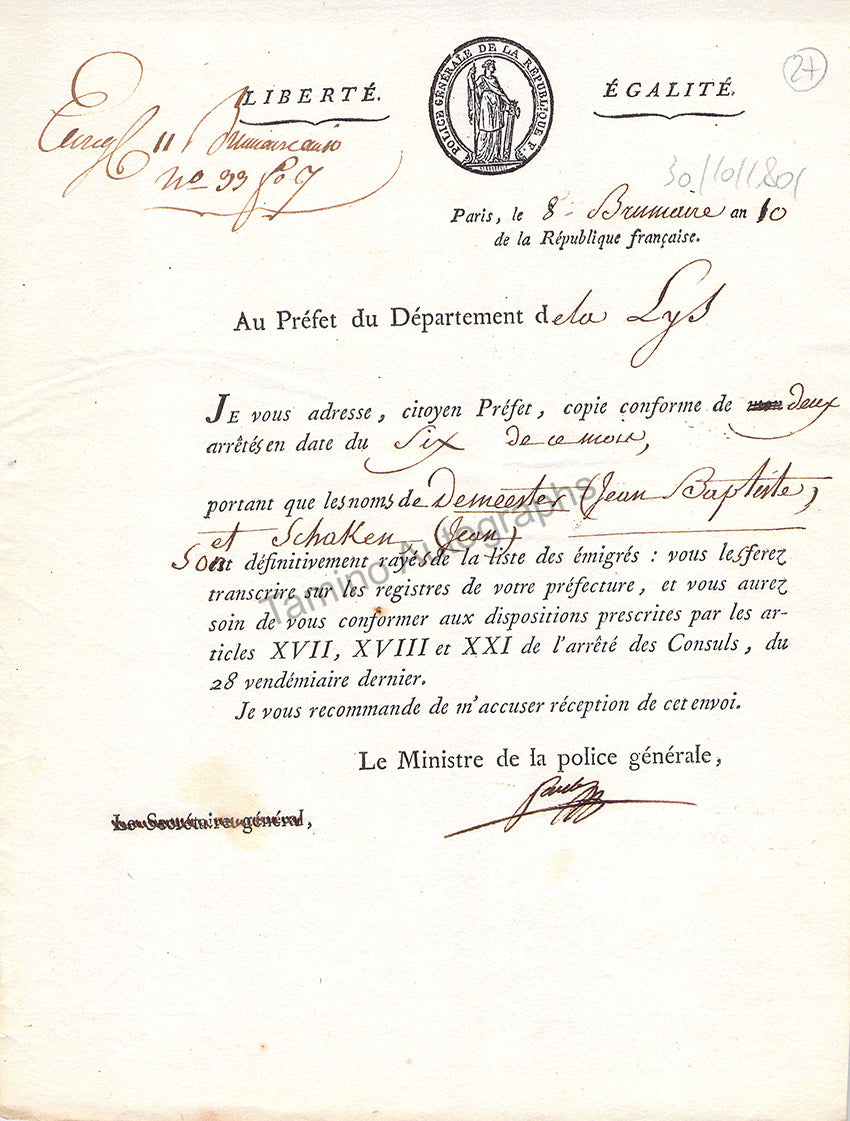 27
LIBERTÉ.
POLICE GÉNÉRALE DE LA RÉPUBLIQUE F.
ÉGALITÉ.
11 Brumaire an 10
No 33 fo 7
30/10/1801
Paris, le 8 Brumaire an 10
de la République française.
Au Préfet du Département de la Lys
JE vous adresse, citoyen Préfet, copie conforme de mon deux
arrêtés en date du Six de ce mois,
portant que les noms de Demeester (Jean Baptiste,
et Schaken (Jean)
Sont définitivement rayés de la liste des émigrés : vous les ferez
transcrire sur les registres de votre préfecture, et vous aurez
soin de vous conformer aux dispositions prescrites par les ar-
ticles XVII, XVIII et XXI de l'arrêté des Consuls, du
28 vendémiaire dernier.
Je vous recommande de m'accuser réception de cet envoi.
Le Ministre de la police générale,
Le Secrétaire général,
Tamino Autographs